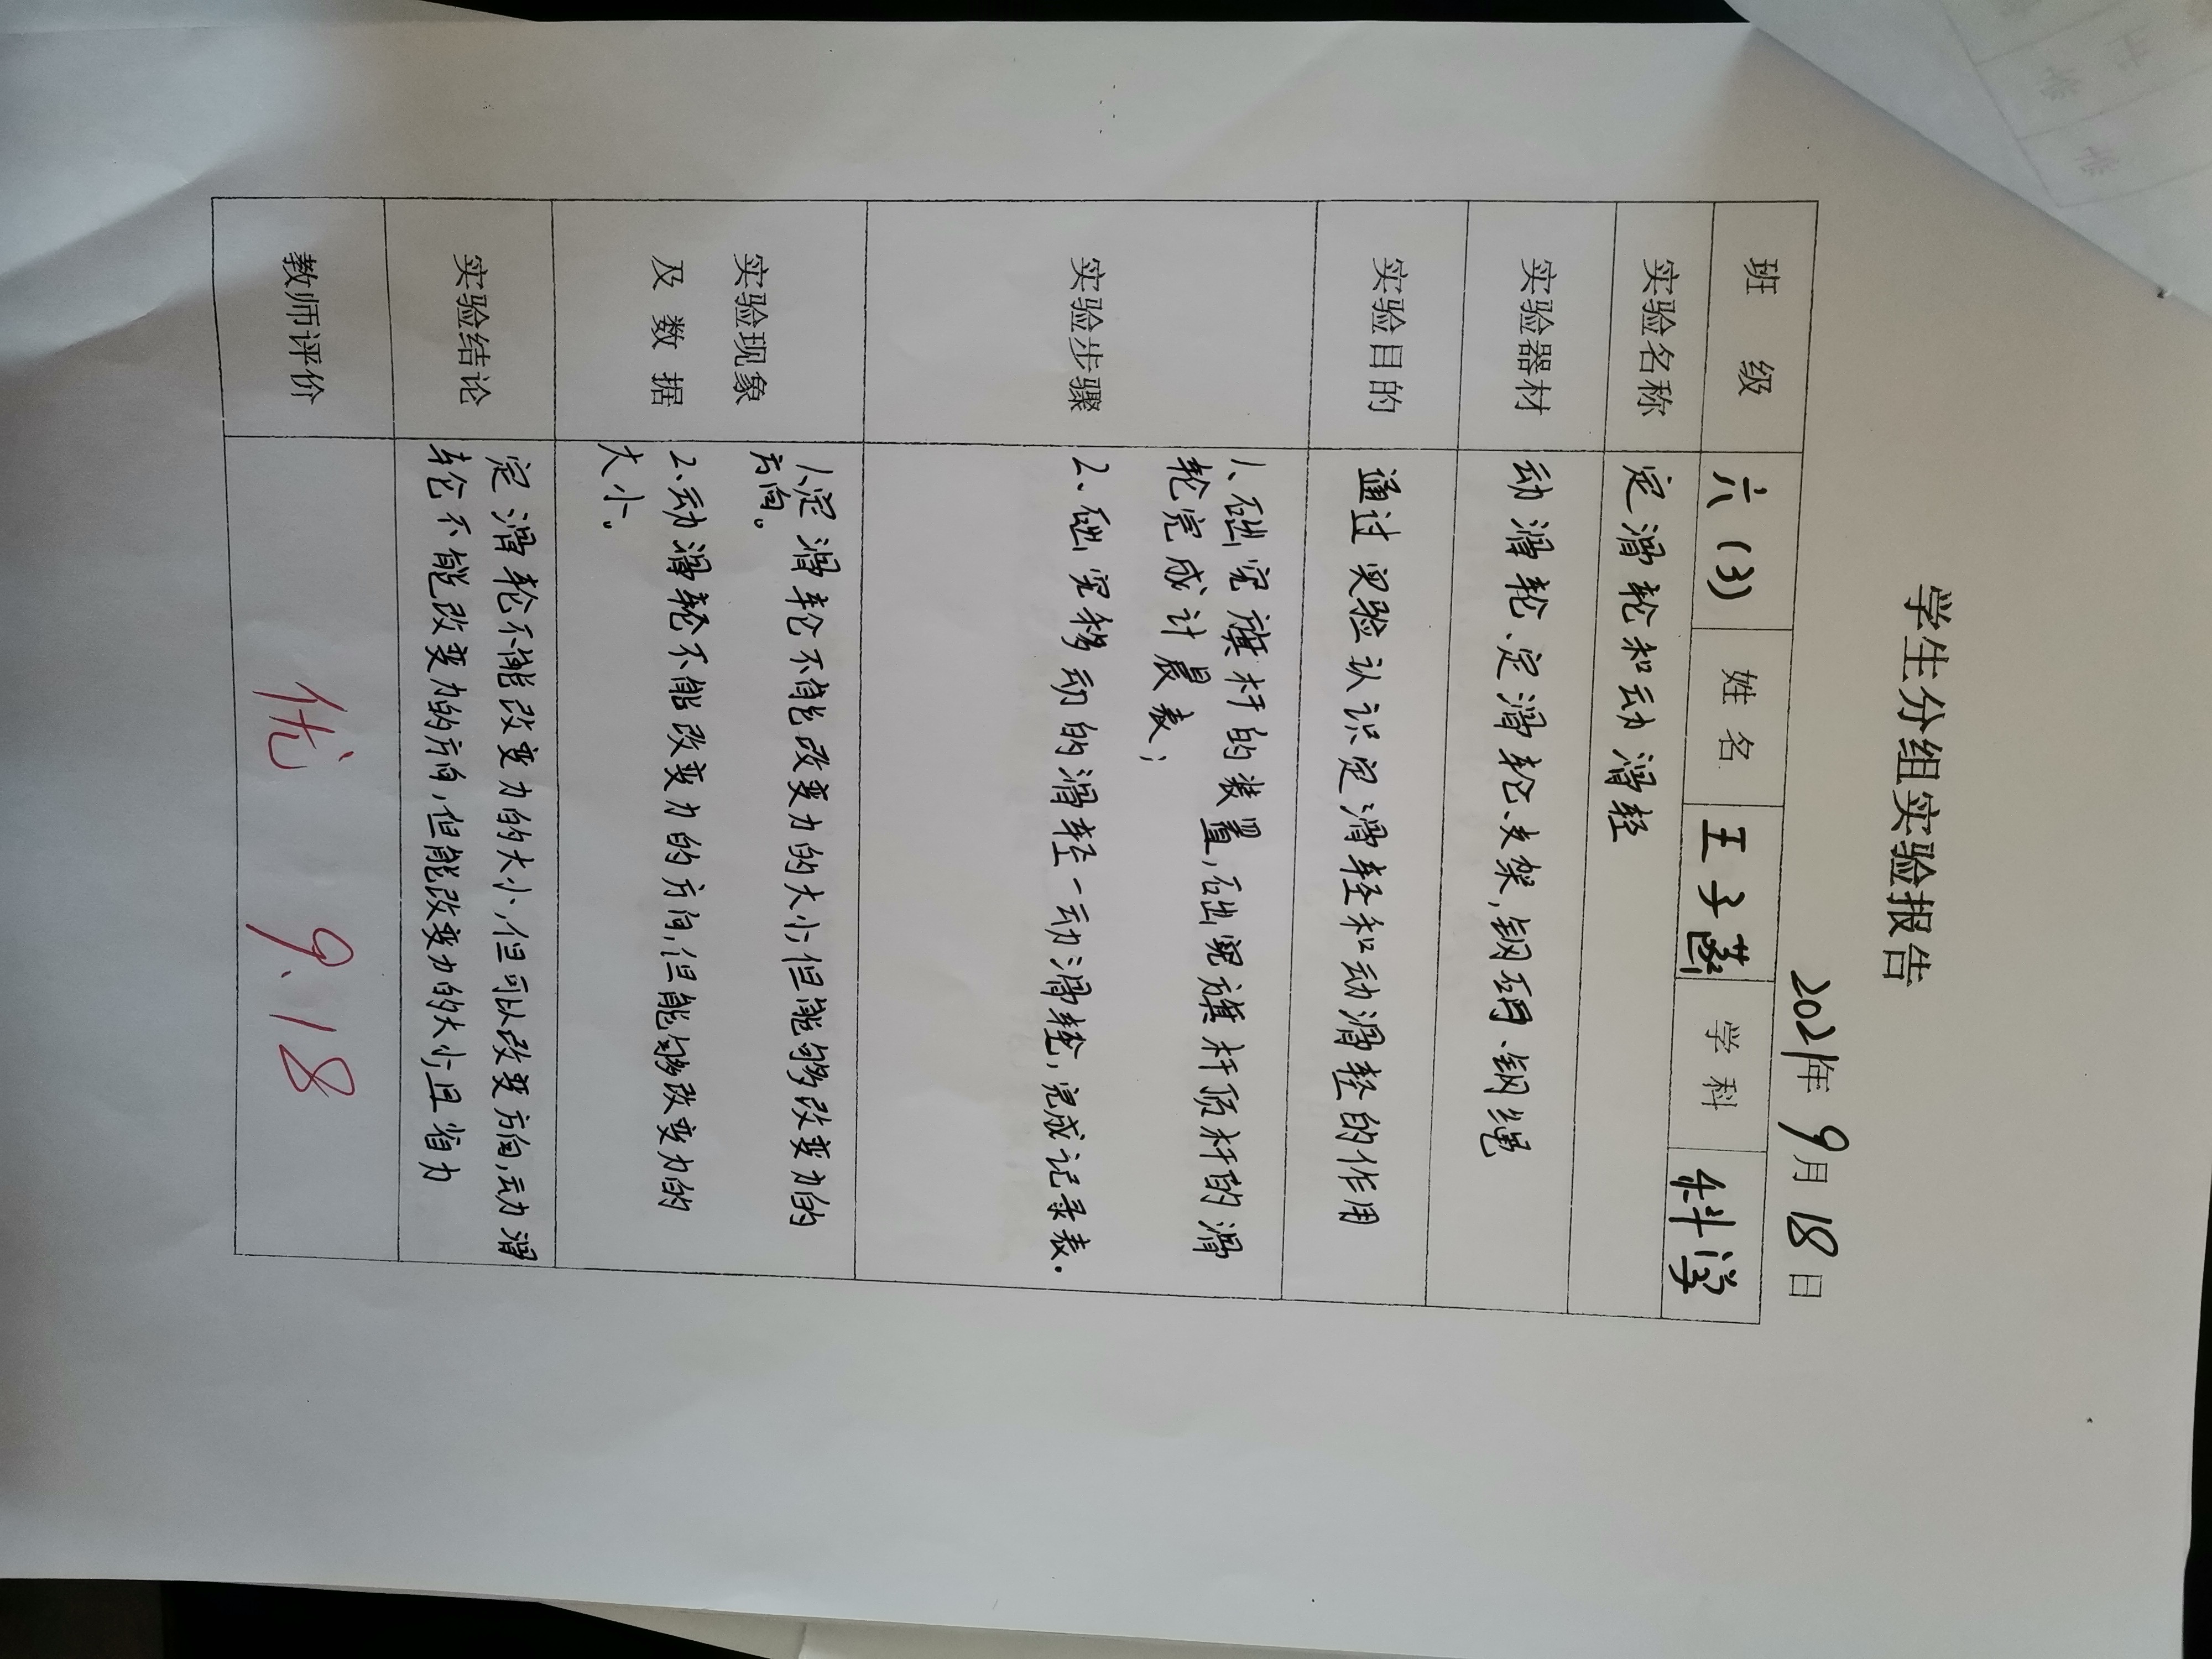 学生分组实验报告
2021年 9月 18日
班 级 六(3) 姓 名 王子菡 学 科 科学
实验名称 定滑轮和动滑轮
实验器材 动滑轮、定滑轮、支架,钩码、钢绳
实验目的 通过实验认识定滑轮和动滑轮的作用
实验步骤
1、础究旗杆的装置,础究旗杆顶杆的滑
轮完成计晨表;
2、础究移动的滑轮一动滑轮,完成记录表.
实验现象
及 数 据
1、定滑轮不能改变力的大小,但能够改变力的
方向。
2、动滑轮不能改变力的方向,但能够改变力的
大小。
实验结论
定滑轮不能改变力的大小,但可以改变方向,动滑
轮不能改变力的方向,但能改变力的大小,且省力
教师评价 优 9.18